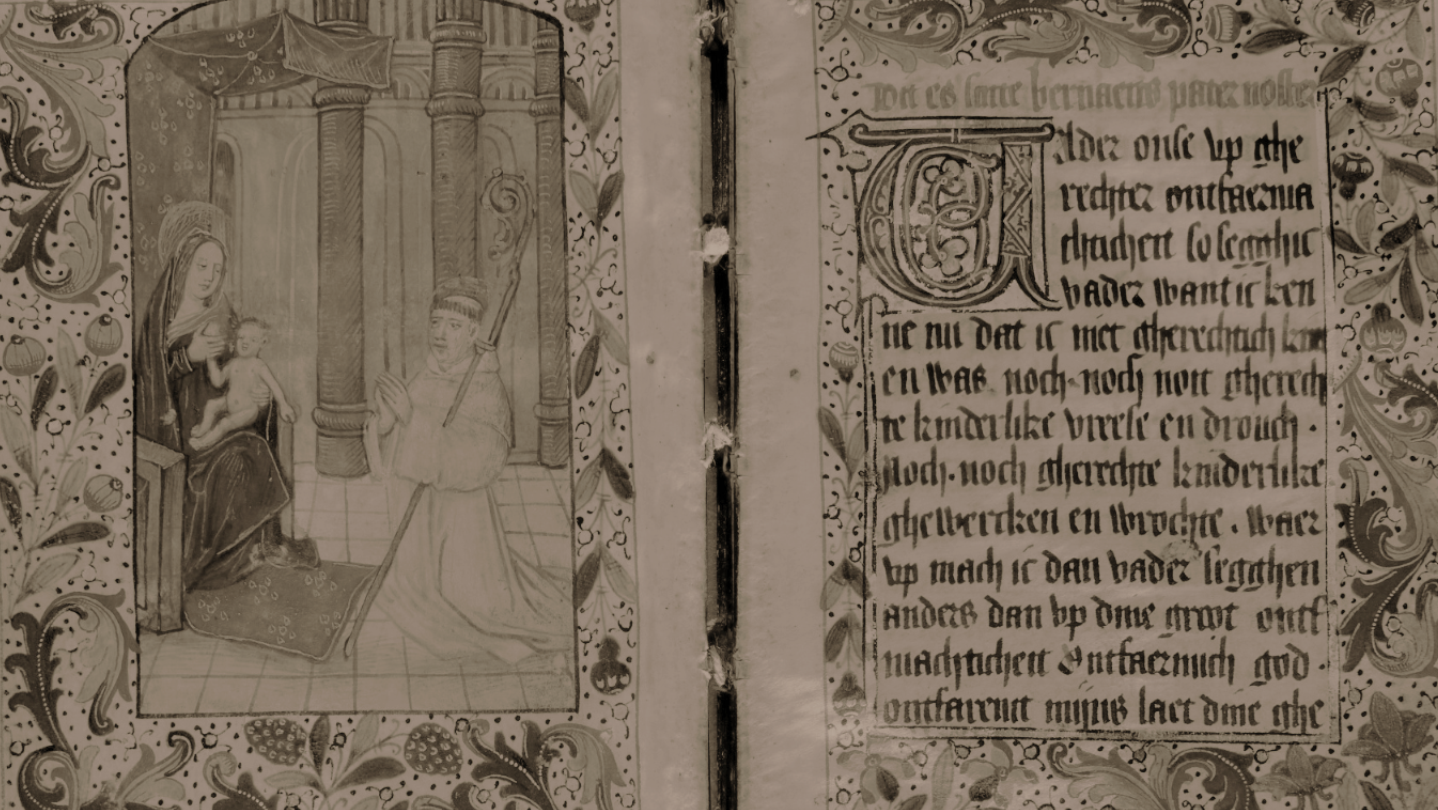 Dit es sante bernaerts pater noster
Vader onse vp ghe
rechter ontfaerma
chticheit so segghic
vader want ic ken
ne nu dat ic niet gherechtich
en was noch · noch noit gherech
te kinderlike vreese en drouch ·
Noch · noch gherechte kinderlike
ghewercken en wrochte · waer
vp mach ic dan vader segghen
anders dan vp dine groot ontf
machticheit Ontfaermich god ·
ontfarent mijns laet dine ghe